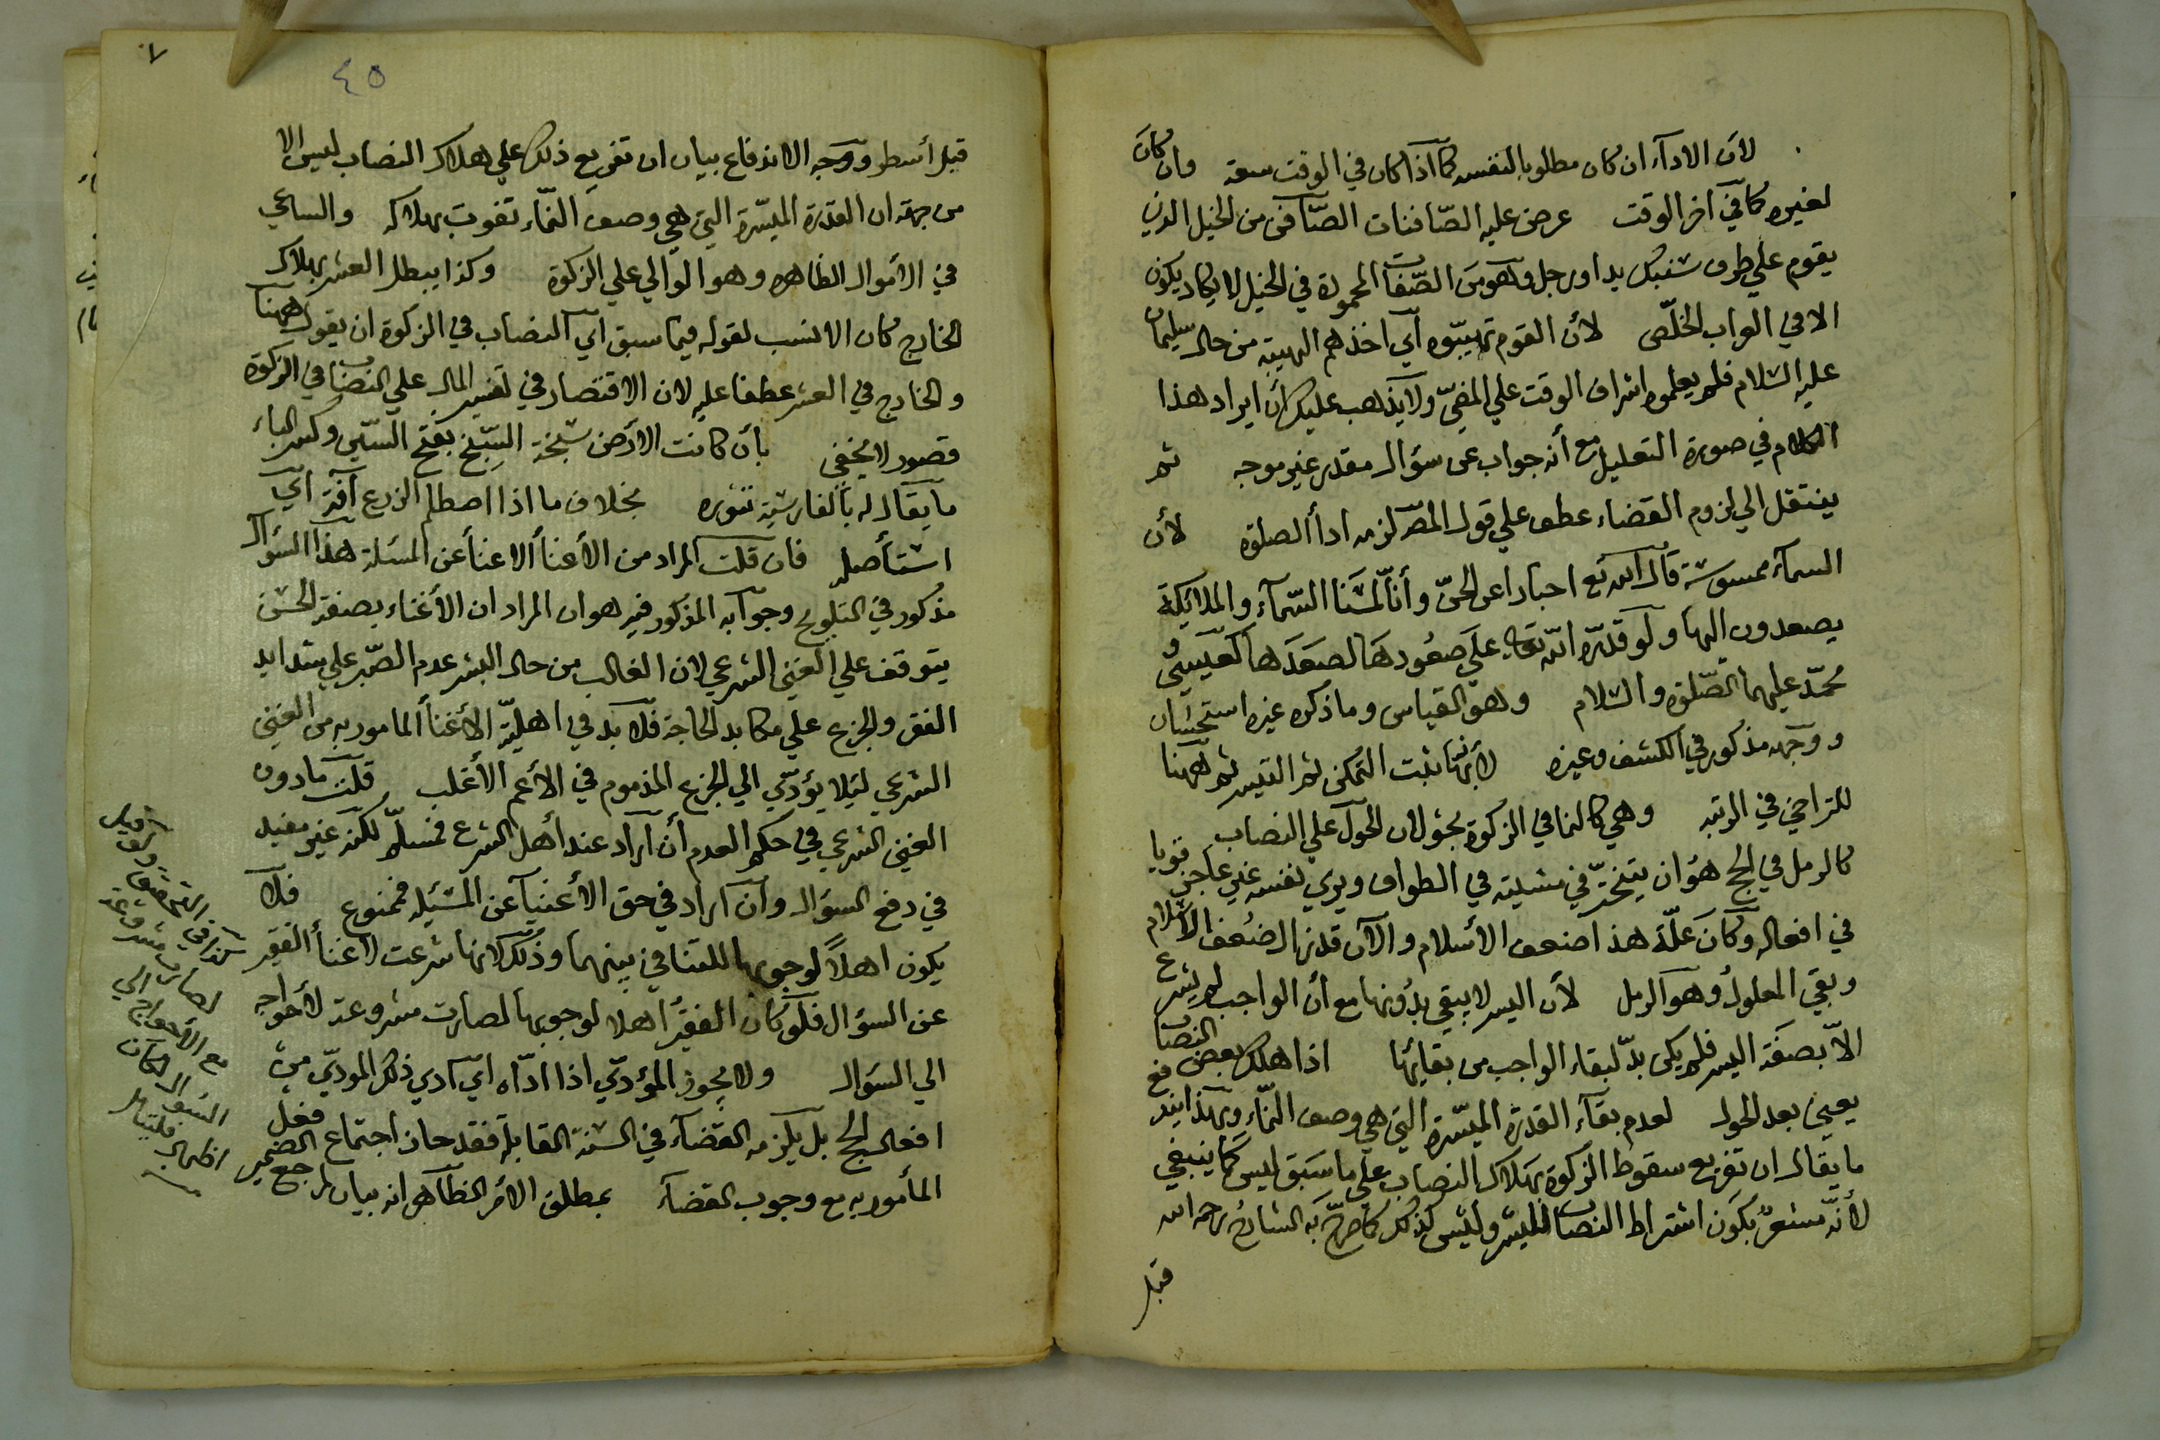 لان الاداء ان كان مطلوبا لنفسه كما اذا كان في الوقت سعة وان كان
لغيره كما في آخر الوقت عرض عليه الصافنات الصافن من الخيل الذي
يقوم علي طرف سنبك يد او رجل وهو من الصفات المحمودة في الخيل لا يكاد يكون
الا في العراب الخلّص لأن القوم تهيبوه أي اخذهم الهيبة من حال سليمان
عليه السلام فلم يعلموه اشراف الوقت علي المضيّ ولا يذهب عليك أن ايراد هذا
الكلام في صورة التعليل مع أنه جواب عن سؤال مقدر غير موجه ثم
ينتقل الي لزوم القضاء عطف علي قول المصّ لزمه اداأ الصلوة لأن
السمآء ممسوسة قال الله تع اخبارا عن الجنّ وأنّا لمسنا السّمآء والملائكة
يصعدون اليها ولو قدّره الله تعالى علي صعودها لصعدها كعيسى و
محمّد عليهما الصّلوة والسّلام وهو القياس وما ذكره غيره استحسان
ووجهه مذكور في الكشف وغيره لأنها تثبت التمكن ثم التيسر ثم ههنا
للتراخي في الرتبة وهي كالنما في الزكوة بحؤلان الحول علي النصاب
كالرمل في الحج هو ان يتبختر في مشيته في الطواف ويري نفسه غير عاجز قويا
في افعاله وكان علّة هذا ضعف الأسلام والآن قد زال ضعف الاسلام
وبقي المعلول وهو الرمل لأن اليسر لا يبقي بدونها مع أن الواجب لم يشرع
الاّ بصفة اليسر فلم يكن بدّ لبقاء الواجب من بقائها اذا هلك بعض النصاب
يعني بعد الحول لعدم بقآء القدرة الميسّرة التي هي وصف النمّاء وبهذا اندفع
ما يقال ان تفريع سقوط الزكوة بهلاك النصاب علي ما سبق ليس كما ينبغي
لأنه مشعر بكون اشتراط النصاب لليسر وليس كذلك كما صرّح به الشارح رحمه الله
قبل
٧
٤٥
قبل أسطر ووجه الاندفاع بيان ان تفريع ذلك علي هلاك النصاب ليس الا
من جهة ان القدرة الميسّرة التي هي وصف النمّاء تفوت بهلاكه والساعي
في الأموال الظاهره وهو الوالي علي الزكوة وكذا يبطل العشر بهلاك
الخارج كان الانسب لقوله فيما سبق أي النصاب في الزكوة ان يقول ههنا
والخارج في العشر عطفا عليه لان الاقتصار في تفسير المال علي النصاب في الزكوة
قصور لا يخفي بأن كانت الأرض سبخة السبخ بفتح السّين وكسر الباء
ما يقال له بالفارسية شوره بخلاف ما اذا اصطلم الزرع آفة أي
استأصله فان قلت المراد من الأغناأ الاغناأ عن المسئلة هذا السؤال
مذكور في التلويح وجوابه المذكور فيه هو ان المراد ان الأغناء بصفة الحسن
يتوقف علي الغني الشرعي لان الغالب من حال البشر عدم الصّبر علي شدايد
الفقر والجزع علي مكابد الحاجة فلا بد في اهليّة الأغناأ المامور به من الغني
الشرعي ليلا يؤدّي الي الجزع المذموم في الأعم الأغلب قلت ما دون
الغني الشرعي في حكم العدم أن آراد عند أهل الشرع فمسلّم لكنه غير مفيد
في دفع السؤال وأن آراد في حق الأغنيآ عن المسئيله فممنوع فلا
يكون اهلاً لوجوبها للتنافي بينهما وذلك لانها شرعت لاغناأ الفقير
عن السؤال فلو كان الفقير اهلا لوجوبها لصارت مشروعة لأحواجه
الي السؤال ولا يجوز المؤدّي اذا ادّاه أي أدي ذلك المودّي من
افعال الحج بل يلزمه القضآء في السّنة القابلة فقد جاز اجتماع فعل
المأمور به مع وجوب القضآء بمطلق الأمر الظآهر انه بيان لمرجع الضمير
كذا في
لصارت مشروعة
مع الأحواج الي
السؤال لكان
اظهر فليتامل